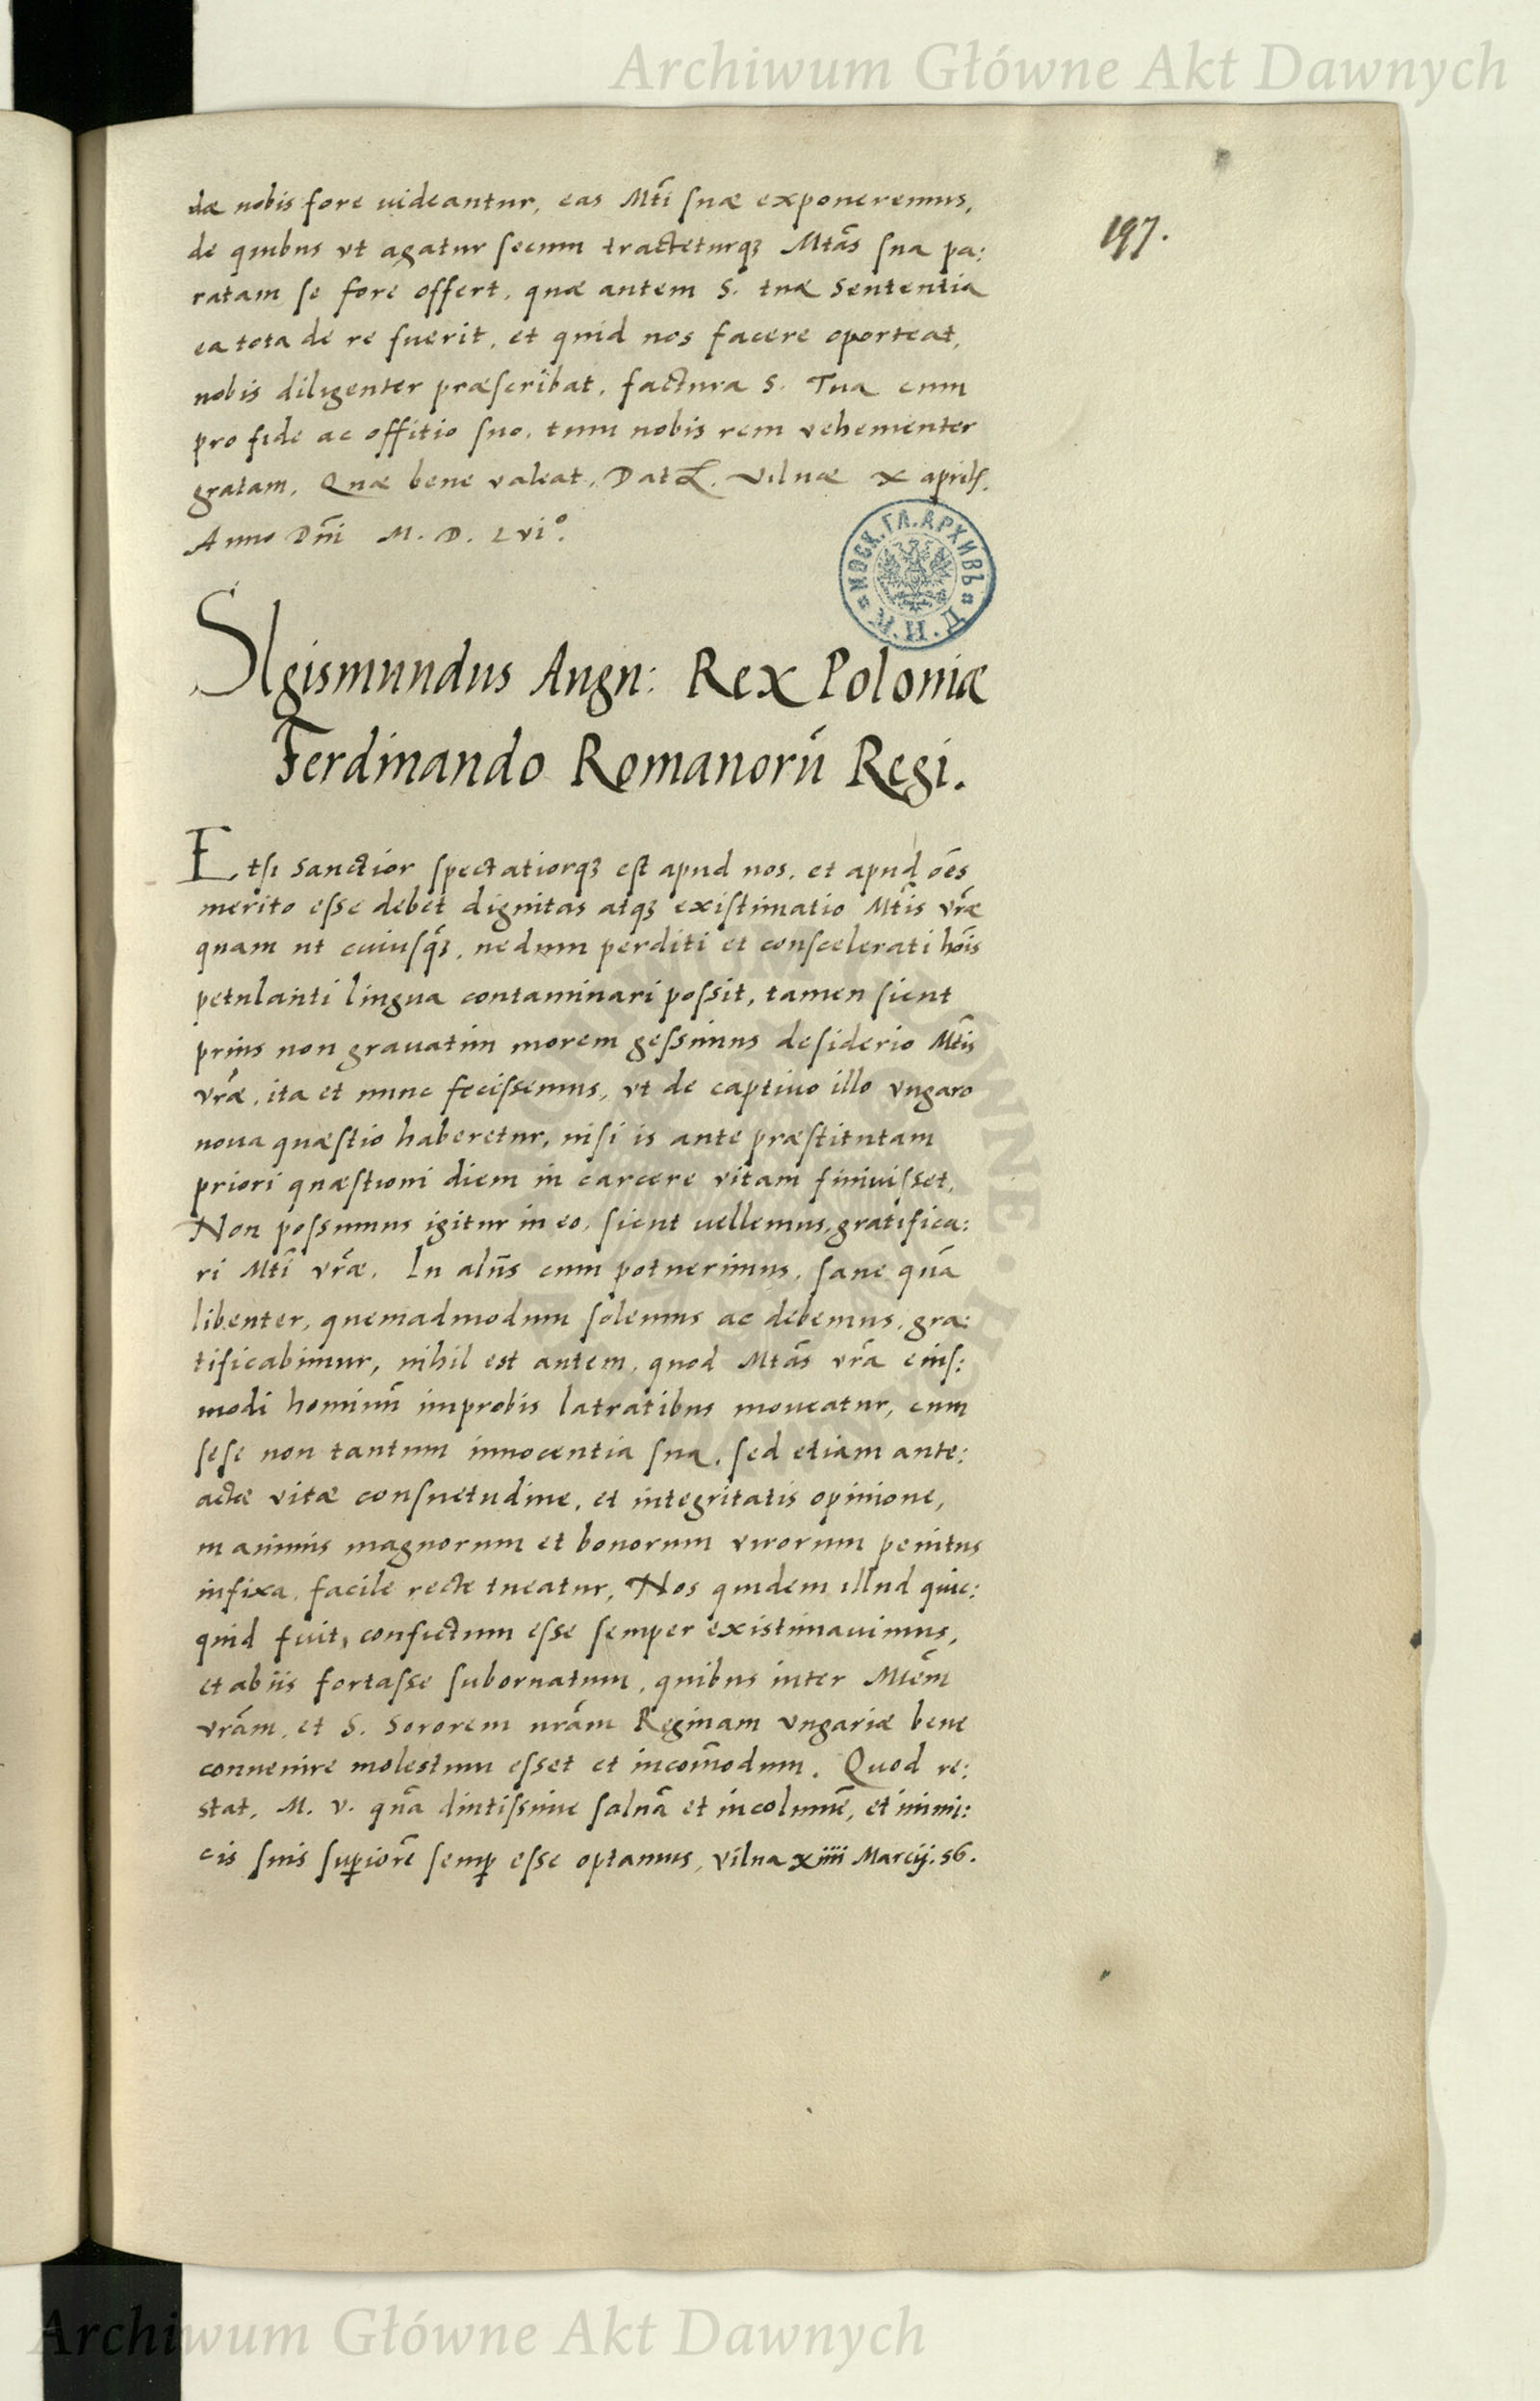 Archiwum Główne Akt Dawnych
197.
dæ nobis fore uideantur, eas Mti̅ suæ exponeremus,
de quibus vt agatur secum tracteturqꝫ Mta̅s sua pa:
ratam se fore offert, quæ autem S. tuæ Sententia
ea tota de re fuerit, et quid nos facere oporteat,
nobis diligenter præscribat, factura S. Tua cum
pro fide ac offitio suo, tum nobis rem vehementer
gratam. Quæ bene valeat, Dat. Vilnæ X aprilis.
Anno Dn̅i M. D. LVIº.
МОСК. ГЛ. АРХИВЪ
SIgismundus Augu: Rex Poloniæ
Ferdinando Romanorū Regi.
Etsi sanctior spectatiorqꝫ est apud nos, et apud oe̅s
merito esse debet dignitas atqꝫ existimatio Mti̅s vr̅æ
quam ut cuiusqꝫ, nedum perditi et conscelerati ho̅is
petulanti lingua contaminari possit, tamen sicut
prius non grauatim morem gessimus desiderio Mti̅s
vr̅æ, ita et nunc fecissemus, vt de captiuo illo vngaro
noua quæstio haberetur, nisi is ante præstitutam
priori quæstioni diem in carcere vitam finiuisset,
Non possumus igitur in eo, sicut uellemus, gratifica:
ri Mti̅ vr̅æ. In alijs cum potuerimus, sane quā
libenter, quemadmodum solemus ac debemus, gra:
tificabimur, nihil est autem, quod Mta̅s vr̅a eius:
modi hominū improbis latratibus moueatur, cum
sese non tantum innocentia sua, sed etiam ante:
actæ vitæ consuetudine, et integritatis opinione,
in animis magnorum et bonorum virorum penitus
infixa, facile recte tueatur, Nos quidem illud quic:
quid fuit, confictum esse semper existimauimus,
et ab iis fortasse subornatum, quibus inter Mte̅m
vr̅am, et S. Sororem nr̅am Reginam vngariæ bene
conuenire molestum esset et inco̅modum. Quod re:
stat, M. v. quā diutissime saluā et incolumē, et inimi:
cis suis superiorē semper esse optamus, Vilna xiiii Marcij. 56.
Archiwum Główne Akt Dawnych